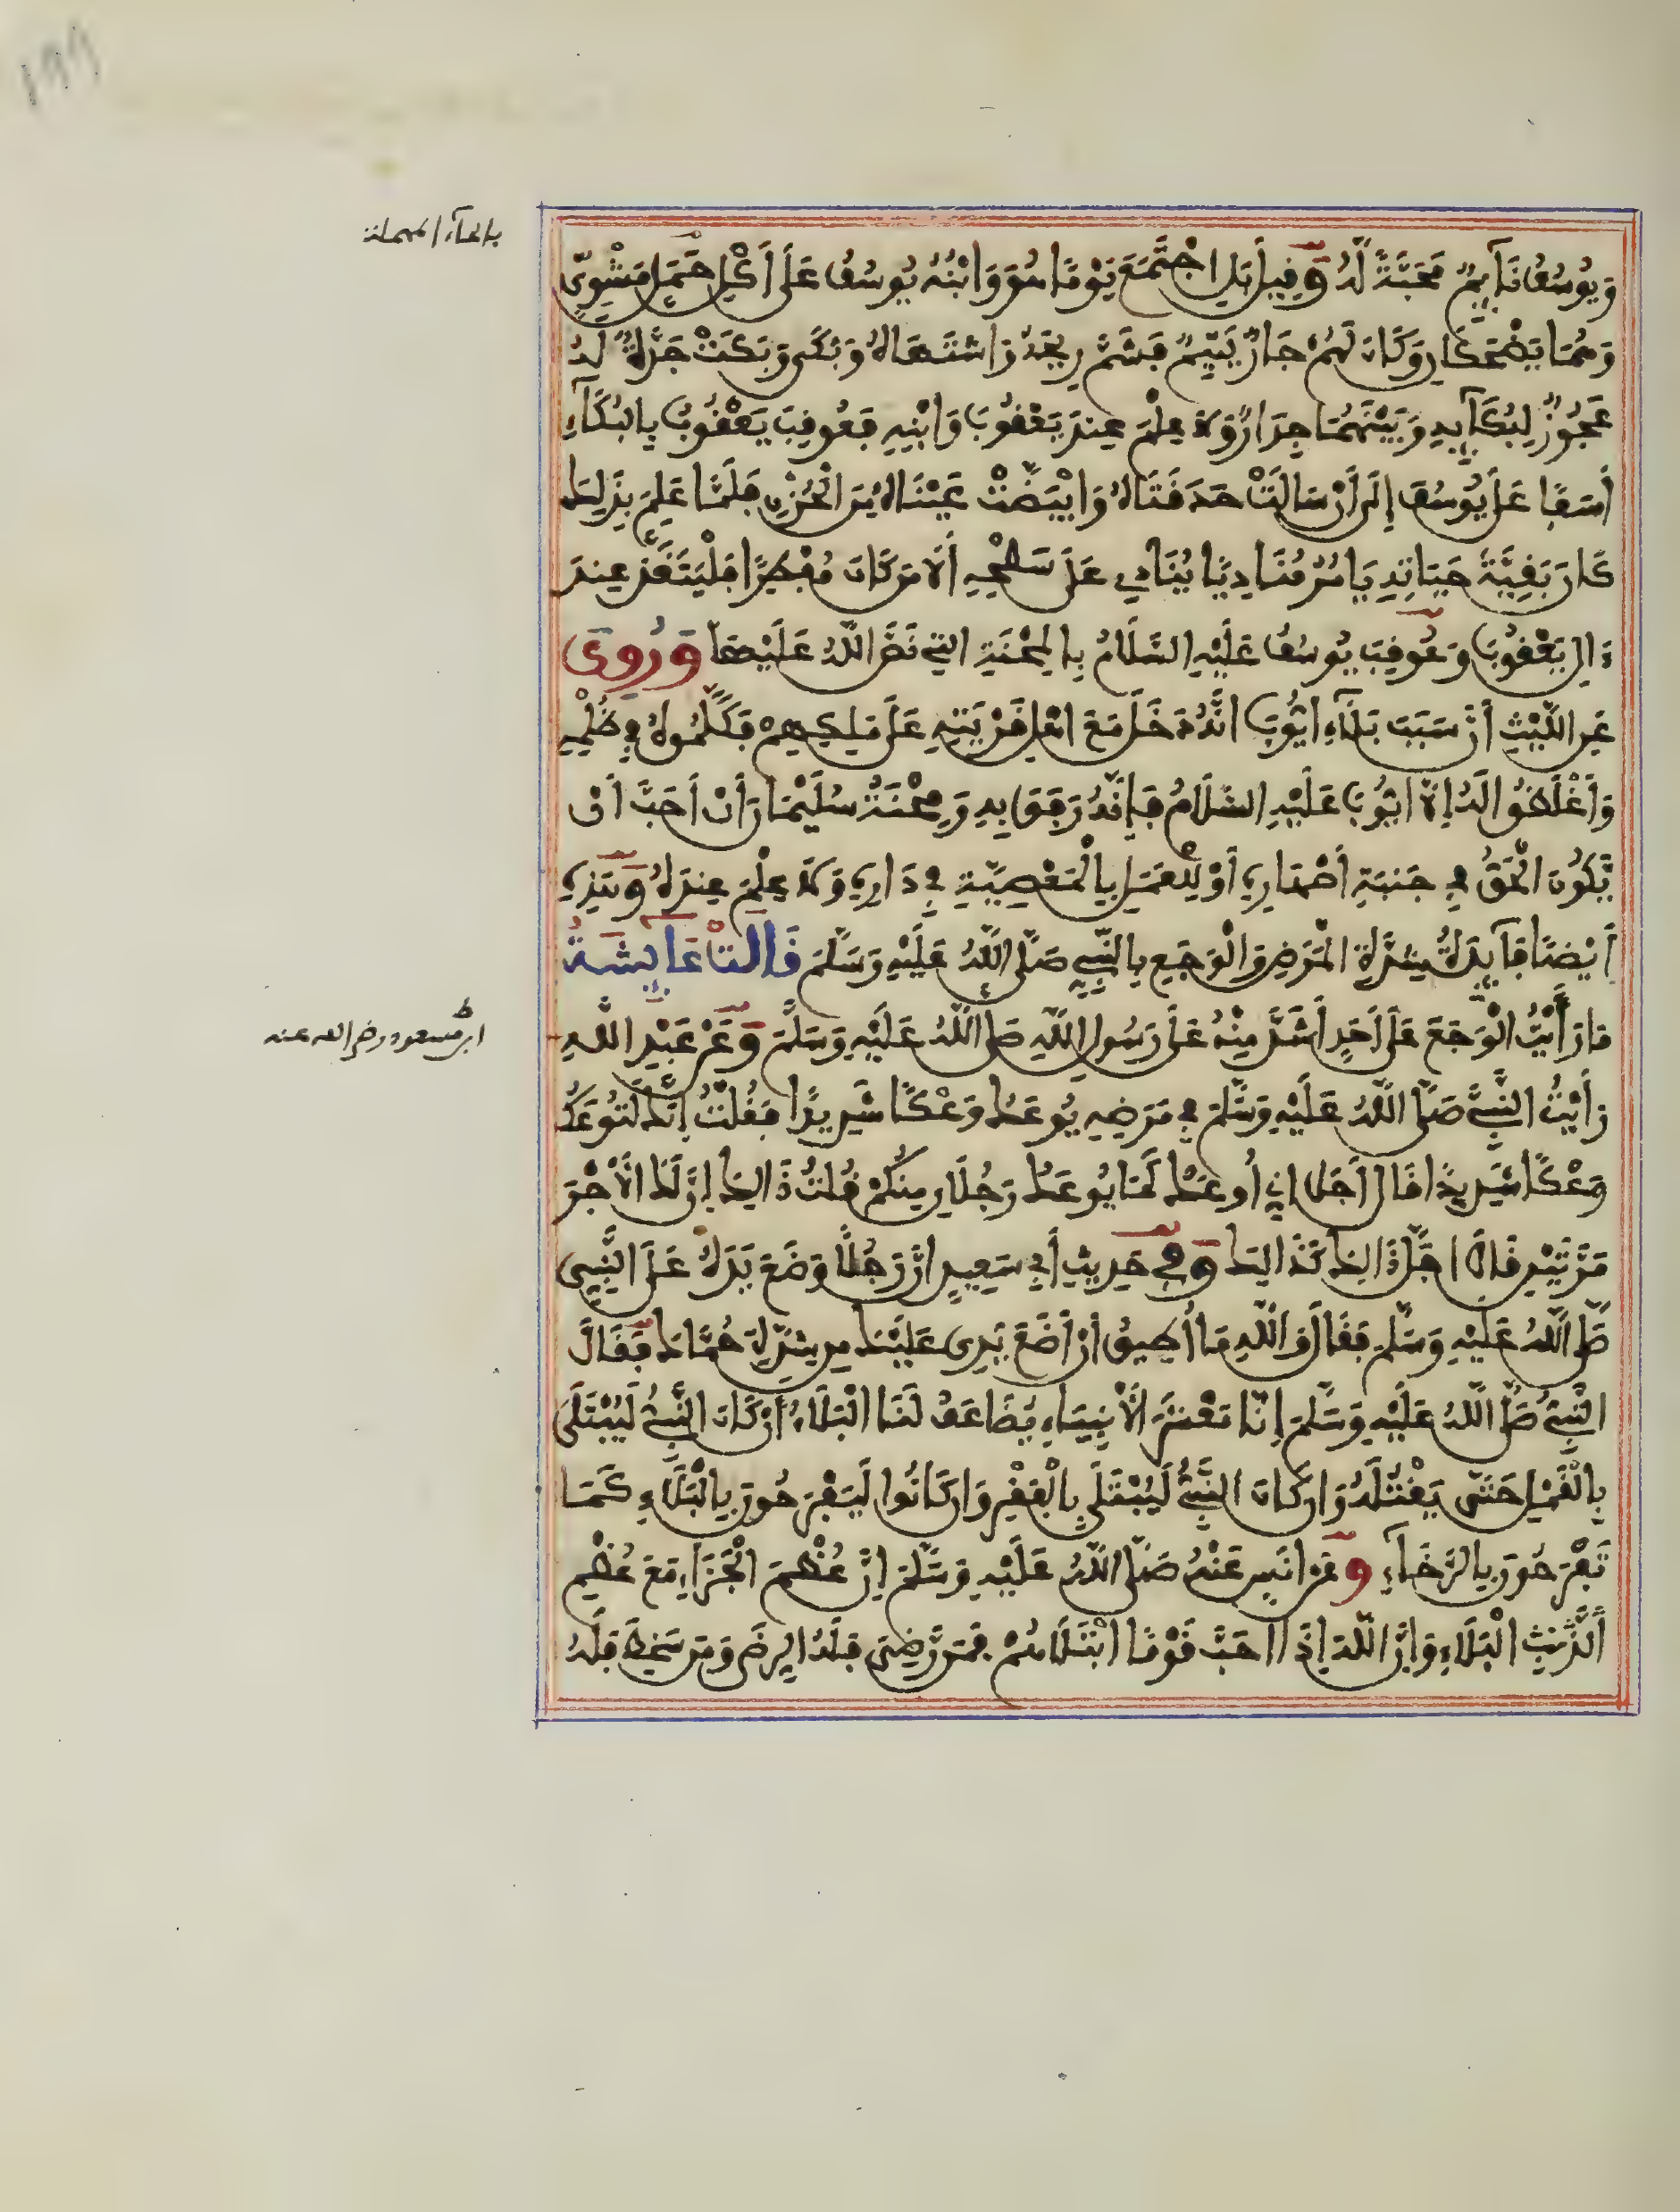 وَيُوسُفُ نَآئِمٌ مَحَبَّةً لَهُ وَقِيلَ بَلِ اجْتَمَعَ يَوْمًا هُوَ وَابْنُهُ يُوسُفُ عَلَى أَكْلِ حَمَلٍ مَشْوِيٍّ
وَهُمَا يَضْحَكَانِ وَكَانَ لَهُمْ جَارٌ يَتِيمٌ فَشَمَّ رِيحَهُ وَاشْتَهَاهُ وَبَكَى وَبَكَتْ جَدَّةٌ لَهُ
عَجُوزٌ لِبُكَآئِهِ وَبَيْنَهُمَا جِدَارٌ وَلَا عِلْمَ عِنْدَ يَعْقُوبَ وَابْنِهِ فَعُوقِبَ يَعْقُوبُ بِالبُكَآءِ
أَسَفًا عَلَى يُوسُفَ إِلَى أَنْ سَالَتْ حَدَقَتَاهُ وَابْيَضَّتْ عَيْنَاهُ مِنَ الْحُزْنِ فَلَمَّا عَلِمَ بِذَلِكَ
كَانَ بَقِيَّةَ حَيَاتِهِ يَامُرُ مُنَادِيًا يُنَادِي عَلَى سَطْحِهِ أَلَا مَنْ كَانَ مُفْطِرًا فَلْيَتَغَدَّ عِنْدَ
ءَالِ يَعْقُوبَ وَعُوقِبَ يُوسُفُ عَلَيْهِ السَّلَامُ بِالْمِحْنَةِ التِي نَصَّ اللَّهُ عَلَيْهَا وَرُوِيَ
عَنِ اللَّيْثِ أَنَّ سَبَبَ بَلَآءِ أَيُّوبَ أَنَّهُ دَخَلَ مَعَ أَهْلِ قَرْيَتِهِ عَلَى مَلِكِهِمْ فَكَلَّمُوهُ فِي ظُلْمِهِ
وَأَغْلَظُوا لَهُ إِلَّا أَيُّوبَ عَلَيْهِ السَّلَامُ فَإِنَّهُ رَفَقَ بِهِ وَمِحْنَةُ سُلَيْمَانَ أَنْ أَحَبَّ أَنْ
يَّكُونَ الْحَقُّ فِي جَنَبَةِ أَصْهَارِهِ أَوْ لِلْعَمَلِ بِالْمَعْصِيَةِ فِي دَارِهِ وَلَا عِلْمَ عِنْدَهُ وَهَذِهِ
أَيْضًا فَآئِدَةُ شِدَّةِ الْمَرَضِ وَالْوَجَعِ بِالنَّبِيِّ صَلَّى اللَّهُ عَلَيْهِ وَسَلَّمَ قَالَتْ عَائِشَةُ
مَا رَأَيْتُ الْوَجَعَ عَلَى أَحَدٍ أَشَدَّ مِنْهُ عَلَى رَسُولِ اللَّهِ صَلَّى اللَّهُ عَلَيْهِ وَسَلَّمَ وَعَنْ عَبْدِ اللَّهِ
رَأَيْتُ النَّبِيَّ صَلَّى اللَّهُ عَلَيْهِ وَسَلَّمَ فِي مَرَضِهِ يُوعَكُ وَعْكًا شَدِيدًا فَقُلْتُ إِنَّكَ لَتُوعَكُ
وَعْكًا شَدِيدًا قَالَ أَجَلْ إِنِّي أُوعَكُ كَمَا يُوعَكُ رَجُلَانِ مِنكُمْ قُلْتُ ذَالِكَ إِنَّ لَكَ الْأَجْرَ
مَرَّتَيْنِ قَالَ أَجَلْ ذَالِكَ كَذَالِكَ وَفِي حَدِيثِ أَبِي سَعِيدٍ أَنَّ رَجُلًا وَضَعَ يَدَهُ عَلَى النَّبِيِّ
صَلَّى اللَّهُ عَلَيْهِ وَسَلَّمَ فَقَالَ وَاللَّهِ مَا أُطِيقُ أَنْ أَضَعَ يَدِي عَلَيْكَ مِن شِدَّةِ حُمَّاكَ فَقَالَ
النَّبِيُّ صَلَّى اللَّهُ عَلَيْهِ وَسَلَّمَ إِنَّا مَعْشَرَ الْأَنْبِيَاءِ يُضَاعَفُ لَنَا الْبَلَاءُ إِنْ كَانَ النَّبِيُّ لَيُبْتَلَى
بِالْقَمْلِ حَتَّى يَقْتُلَهُ وَإِنْ كَانَ النَّبِيُّ لَيُبْتَلَى بِالْفَقْرِ وَإِنْ كَانُوا لَيَفْرَحُونَ بِالْبَلَاءِ كَمَا
تَفْرَحُونَ بِالرَّخَاءِ وَعَنْ أَنَسٍ عَنْهُ صَلَّى اللَّهُ عَلَيْهِ وَسَلَّمَ إِنَّ عُظْمَ الْجَزَاءِ مَعَ عُظْمِ
الْبَلَاءِ وَإِنَّ اللَّهَ إِذَا أَحَبَّ قَوْمًا ابْتَلَاهُمْ فَمَن رَّضِيَ فَلَهُ الرِّضَى وَمَن سَخِطَ فَلَهُ
بالحآء المهملة
ابن مسعود رضي الله عنه